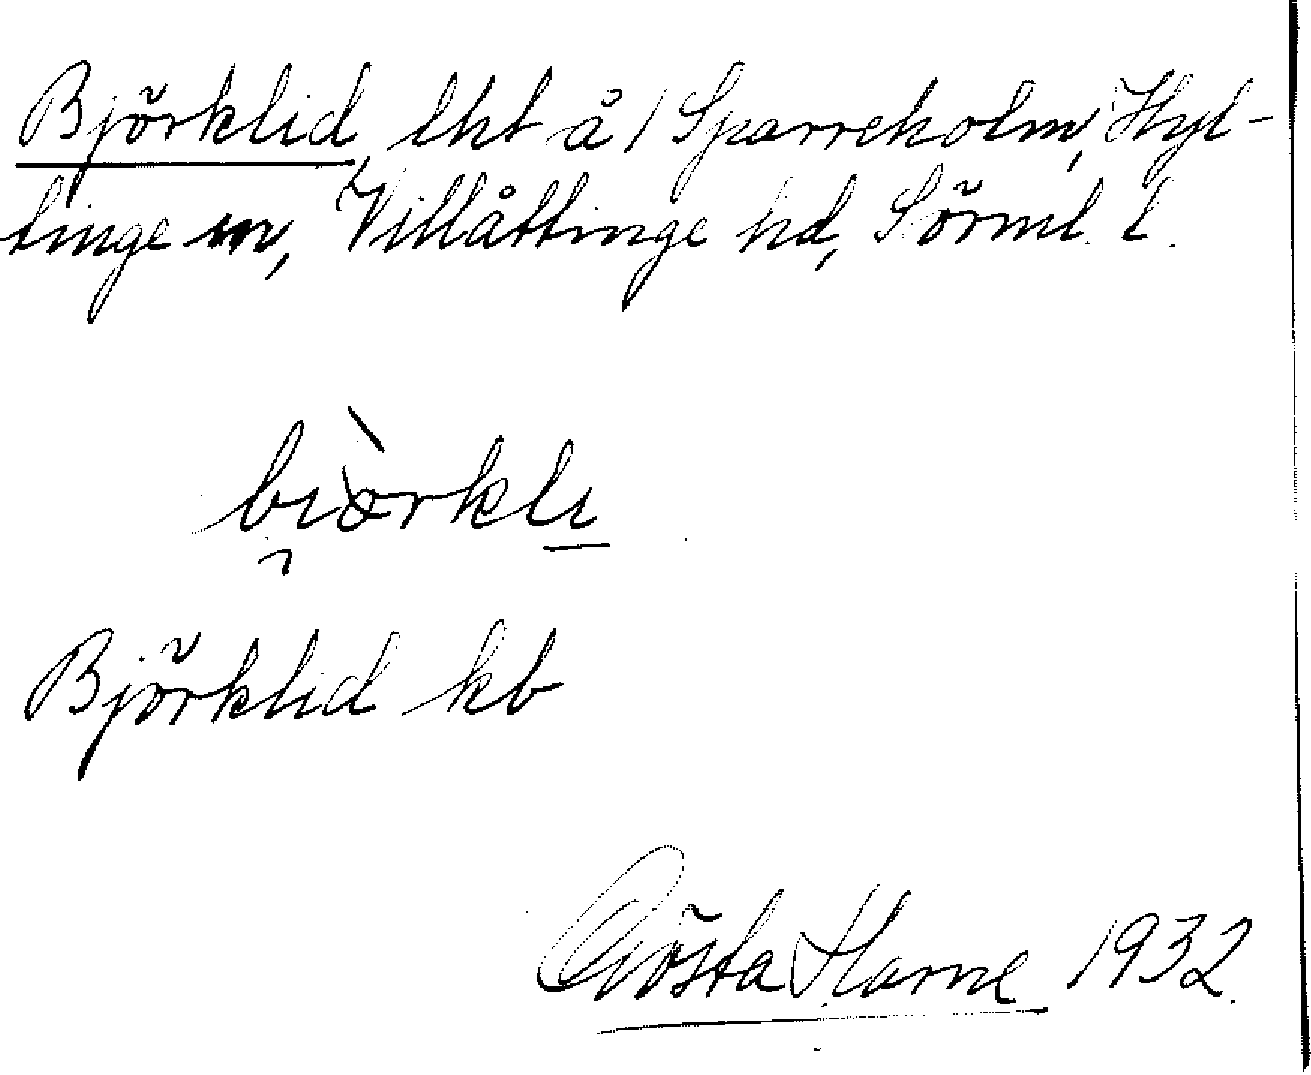 Björklid, lht å / Sparreholm, Hyl-
tinge sn, Villåttinge hd, Sörml. l.
bi̯ò̀rkli̱
Björklid kb
Gösta Harne 1932.